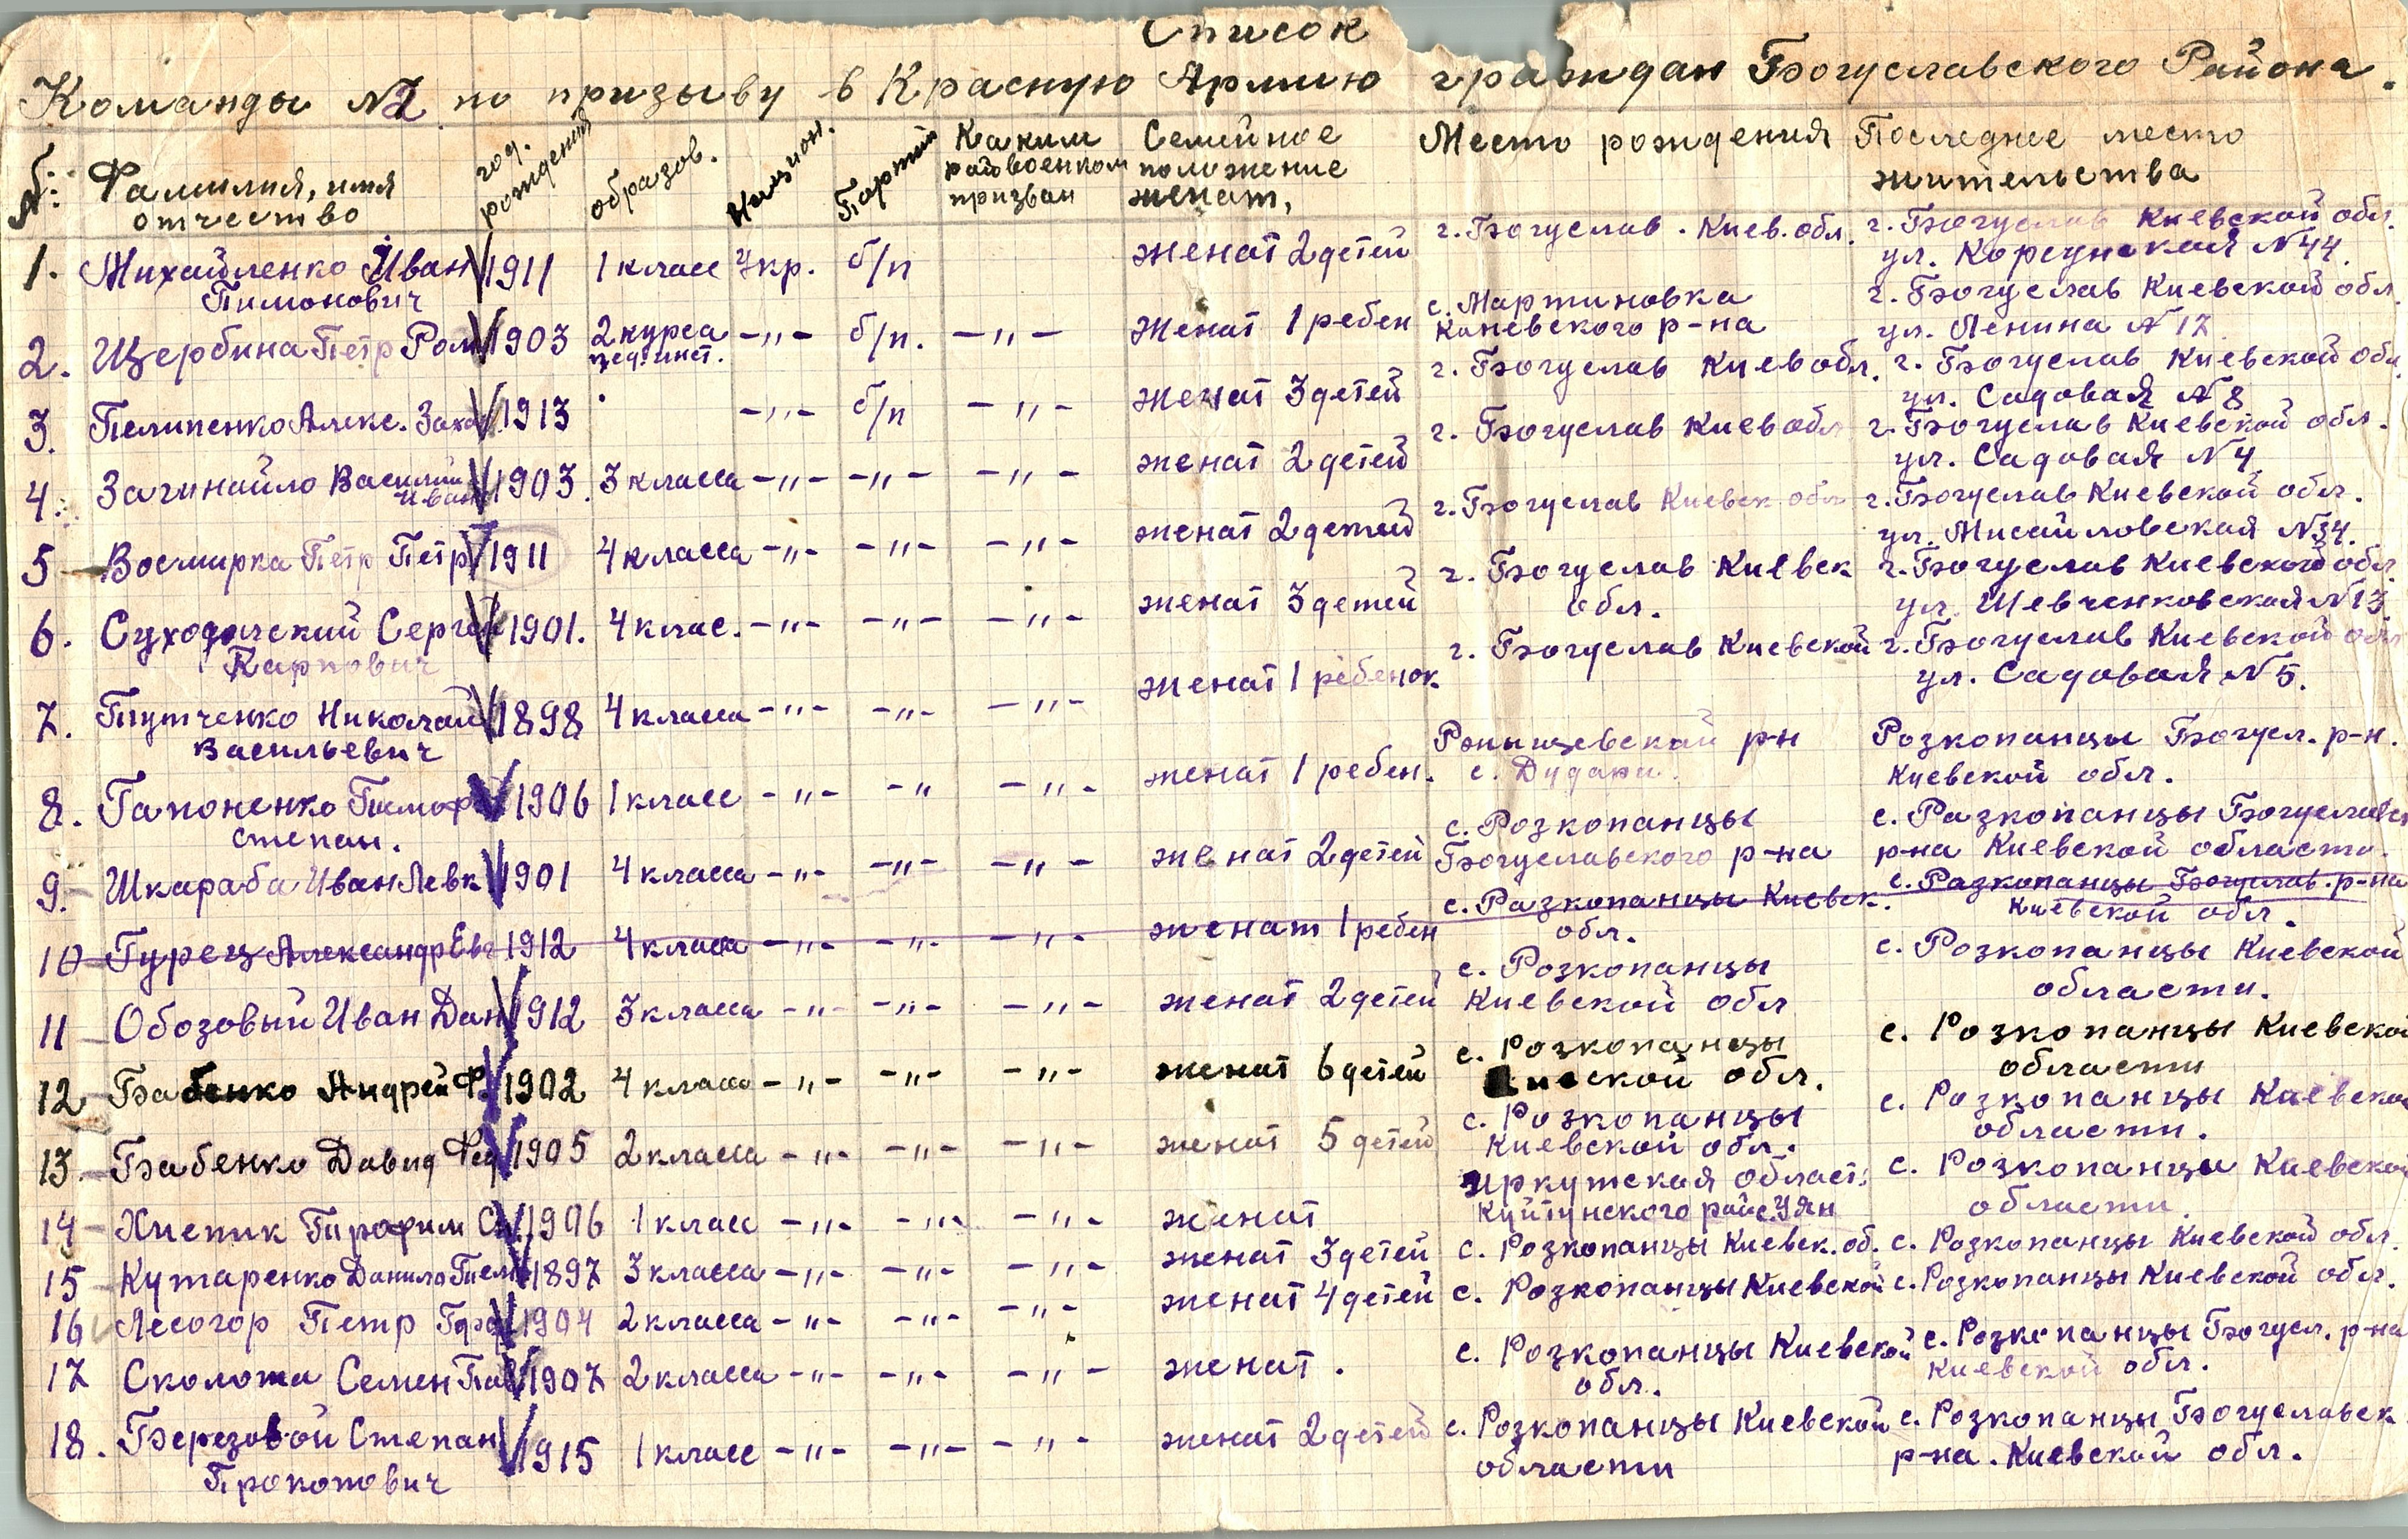 Список
Команды №2 по призыву в Красную Армию граждан Богуславского Района.
№: Фамилия, имя отчество год. рождения образов. Национ. Партий Каким райвоенком призван Семейное положение женат, Место рождения Последнее место жительства
1. Михайленко Иван 1911 1 класс Укр. б/п женат 2 детей г. Богуслав. Киев. обл. г. Богуслав Киевской обл.
Пимонович ул. Корсунская №44.
2. Щербина Петр Ром 1903 2 курса -"- б/п. -"- женат 1 ребен с. Мартиновка г. Богуслав Киевской обл.
пед. инст. Каневского р-на ул. Ленина №17
3. Пелипенко Алекс. Заха 1913 -"- б/п -"- женат 3 детей г. Богуслав Киев обл. г. Богуслав Киевской обл.
ул. Садовая №8
4. Загинайло Василий 1903. 3 класса -"- -"- -"- женат 2 детей г. Богуслав Киев обл г. Богуслав Киевской обл.
Иван ул. Садовая №4
5 Восмирка Петр Петр 1911 4 класса -"- -"- -"- женат 2 детей г. Богуслав Киевск обл г. Богуслав Киевской обл.
ул. Мисайловская №34.
6. Суходольский Сергей 1901. 4 клас. -"- -"- -"- женат 3 детей г. Богуслав Киевск г. Богуслав Киевской обл.
Карпович обл. ул. Шевченковская №13
7. Путченко Николай 1898 4 класса -"- -"- -"- женат 1 ребенок г. Богуслав Киевской г. Богуслав Киевской обл
Васильевич ул. Садовая №5.
8. Гапоненко Тимоф 1906 1 класс -"- -" -"- женат 1 ребен. р-н Розкопанцы Богусл. р-н.
степан. с. Дудари. Киевской обл.
9. Шкараба Иван Левк 1901 4 класса -"- -"- -"- женат 2 детей с. Розкопанцы с. Разкопанцы Богуславск
Богуславского р-на р-на Киевской области.
10 Гурец Александр Евг 1912 4 класса -"- -"- -"- женат 1 ребен с. Разкопанцы Киевск. с. Разкопанцы Богуслав. р-на
обл. Киевской обл.
11 Обозовый Иван Дан 1912 3 класса -"- -"- -"- женат 2 детей с. Розкопанцы с. Розкопанцы Киевской
Киевской обл области.
12 Бабенко Андрей Ф. 1902 4 класса -"- -"- -"- женат 6 детей с. Розкопанцы с. Розкопанцы Киевской
Киевской обл. области
13 Бабенко Давид Фед 1905 2 класса -"- -"- -"- женат 5 детей с. Розкопанцы с. Розкопанцы Киевской
Киевской обл. области.
14 Хиепик Трофим 1906 1 класс -"- -"- -"- женат Иркутская област. с. Розкопанцы Киевской
Куйтунского рай с. Уян области.
15 Кутаренко Данило 1897 3 класса -"- -"- -"- женат 3 детей с. Розкопанцы Киевск. об. с. Розкопанцы Киевской обл.
16 Лесогор Петр 1904 2 класса -"- -"- -"- женат 4 детей с. Розкопанцы Киевской с. Розкопанцы Киевской обл.
17 Сколота Семен Па 1907 2 класса -"- -"- -"- женат. с. Розкопанцы Киевской с. Розкопанцы Богусл. р-на
обл. Киевской обл.
18. Березовой Степан 1915 1 класс -"- -"- -"- женат 2 детей с. Розкопанцы Киевской с. Розкопанцы Богуславск
Прокопович области р-на. Киевской обл.